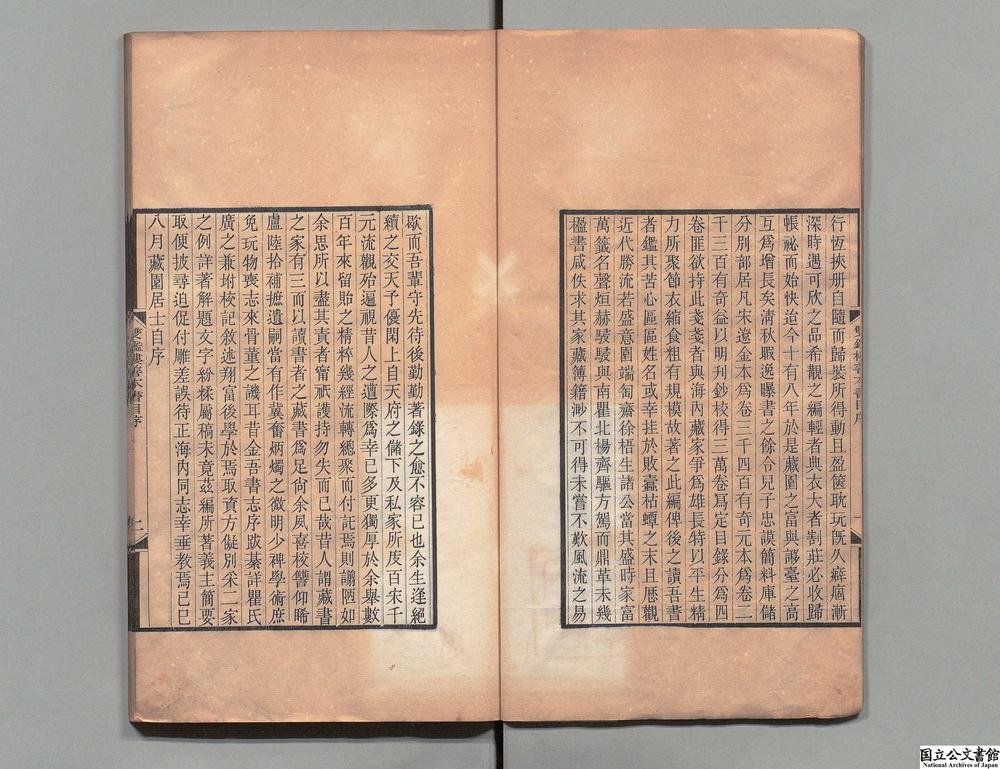 行恆挾册自隨而歸裝所得動且盈篋耽玩旣久癖痼漸
深時遇可欣之品希覯之編輕者典衣大者割莊必收歸
帳祕而始快迨今十有八年於是藏園之富與謻臺之高
互爲增長矣淸秋暇逸曝書之餘合兒子忠謨簡料庫儲
分別部居凡宋遼金本爲卷三千四百有奇元本爲卷二
千三百有奇益以明刋鈔校得三萬卷爲定目錄分爲四
卷匪欲持此戔戔者與海內藏家爭爲雄長特以平生精
力所聚節衣縮食粗有規模故著之此編俾後之讀吾書
者鑑其苦心區區姓名或幸挂於敗蠧枯蟫之末且厯觀
近代勝流若盛意園端匋齋徐梧生諸公當其盛時家富
萬籤名聲烜赫駸駸與南瞿北楊齊驅方駕而鼎革未幾
楹書咸佚求其家藏簿籍渺不可得未嘗不歎風流之易
歇而吾輩守先待後勤勤著錄之愈不容已也余生逢絕
續之交天予優閑上自天府之儲下及私家所庋百宋千
元流觀殆遍視昔人之遭際爲幸已多更獨厚於余舉數
百年來留貽之精粹幾經流轉總聚而付託焉則謭陋如
余思所以盡其責者甯祇護持勿失而已哉昔人謂藏書
之家有三而以讀書者之藏書爲足尙余夙喜校讐仰睎
盧陸拾補摭遺嗣當有作冀奮炳燭之微明少裨學術庶
免玩物喪志來骨董之譏耳昔金吾書志序跋綦詳瞿氏
廣之兼坿校記敘述翔富後學於焉取資方儗別采二家
之例詳著解題文字紛糅屬稿未竟茲編所著義主簡要
取便披尋迫促付雕差誤待正海內同志幸垂教焉己巳
八月藏園居士自序
雙鑑樓善本書目序
一
雙鑑樓善本書目序
二
国立公文書館
National Archives of Japan